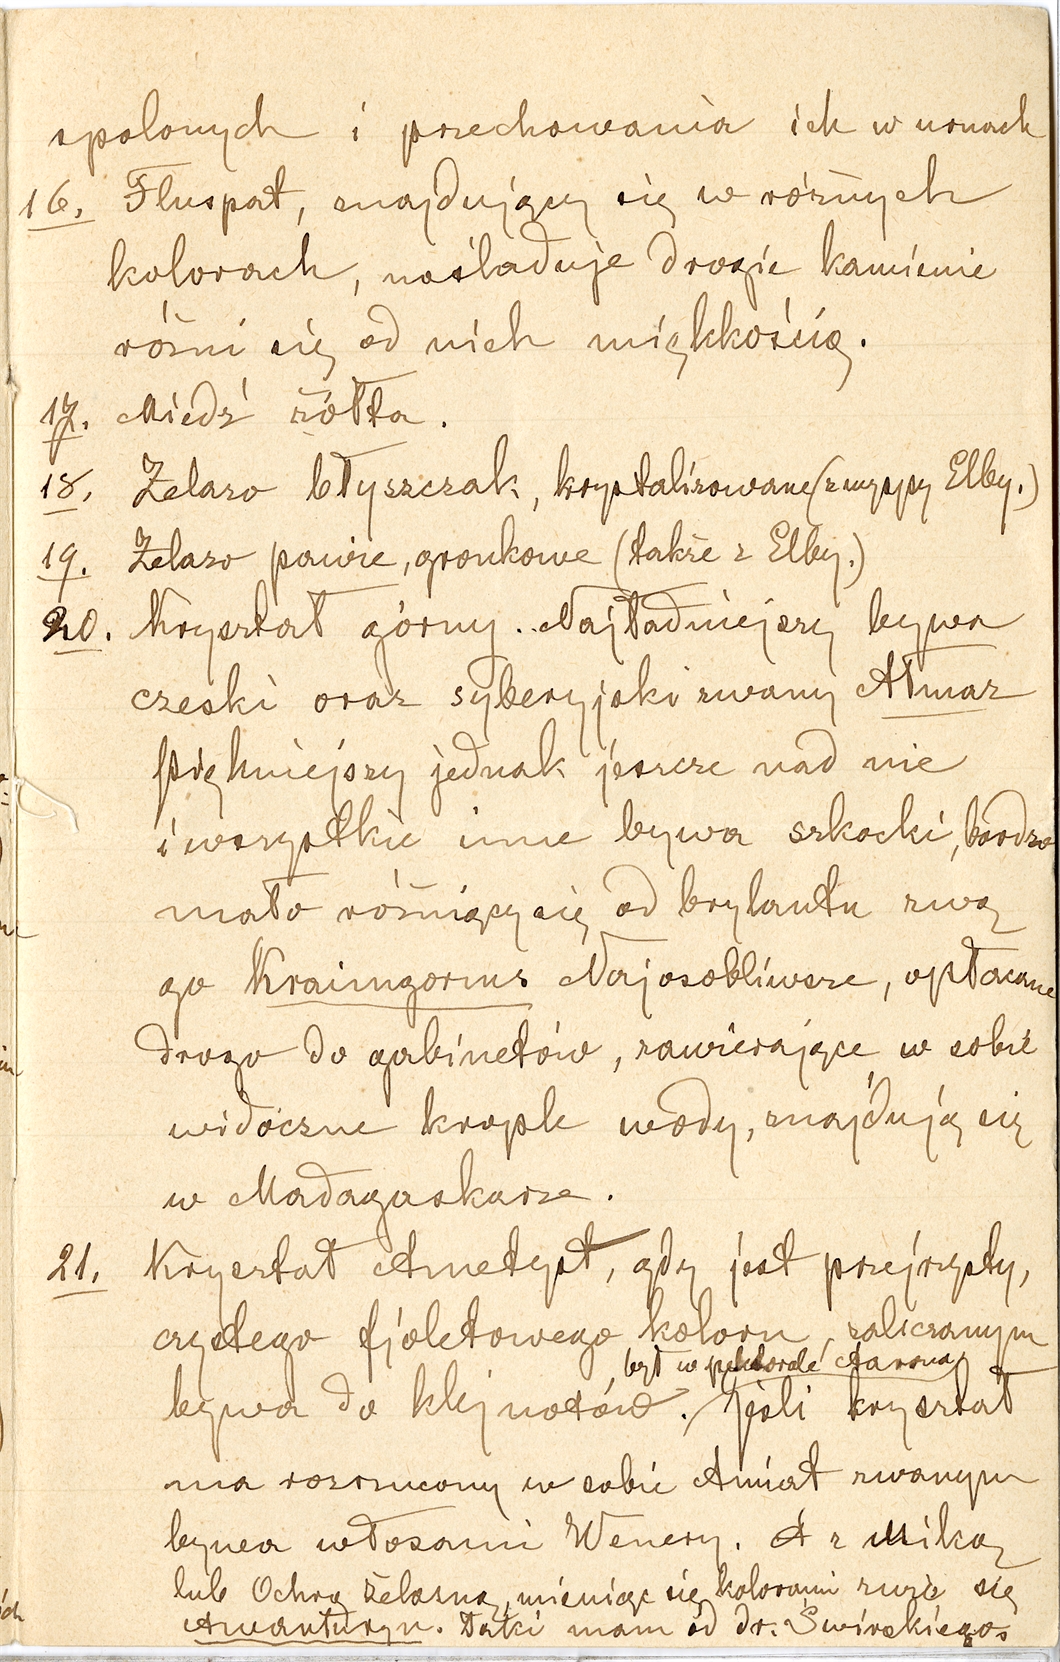 spalonych i przechowania ich w urnach
16. Fluspat, znajdujący się w różnych
kolorach, naśladuje drogie kamienie
różni się od nich miękkością.
17. Miedź żółta.
18. Żelazo błyszczak, krystalizowane (z wyspy Elby.)
19. Żelazo pawie, gronkowe (także z Elby.)
20. Kryształ górny. Najładniejszy bywa
czeski oraz syberyjski zwany Ałmaz
Piękniejszy jednak jeszcze nad nie
i wszystkie inne bywa szkocki, bardzo
mało różniący się od brylantu zwą
go Kraimgorms Najosobliwsze, opłacane
drogo do gabinetów, zawierające w sobie
widoczne krople wody, znajdują się
w Madagaskarze.
21. Kryształ Ametyst, gdy jest przejrzysty,
czystego fjoletowego koloru, zaliczanym
był w pektorale Aarona
bywa do klejnotów. Jeśli kryształ
ma rozrzucony w sobie Amiat zwanym
bywa włosami Wenery. A z Miką
lub Ochrą żelazną, mieniąc się kolorami zwie się
Awanturyn. Taki mam od dr. Świrskiego.